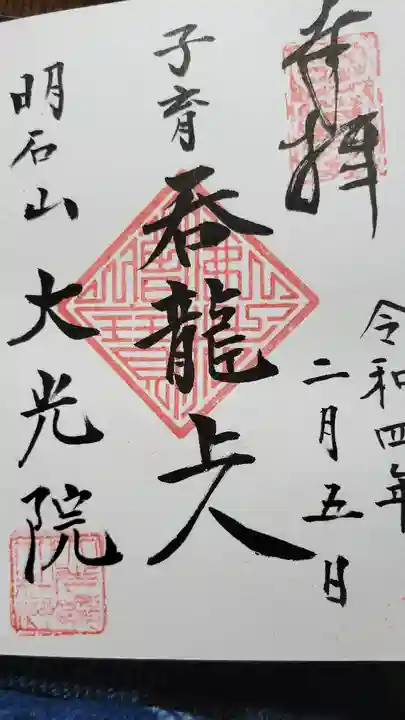 奉拝
令和四年
二月五日
子育
呑龍上人
明石山
大光院